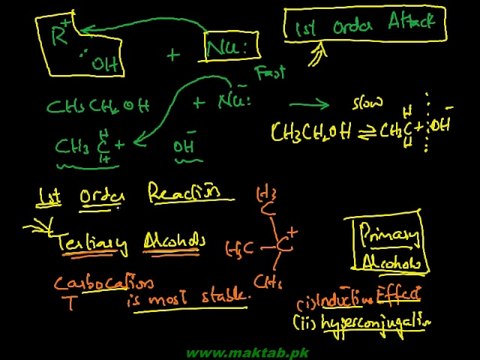 R⁺ :OH + Nu: 1st Order Attack
Fast
CH₃CH₂OH + Nu⁻: → slow
CH₃CH₂OH ⇌ CH₃C⁺ H H + OH⁻
CH₃ C⁺ H H OH⁻
1st Order Reaction
Tertiary Alcohols
H₃C H₃C C⁺ CH₃
Carbocation
T is most stable.
Primary
Alcohols
(i) Inductive Effect
(ii) hyperconjugation
www.maktab.pk